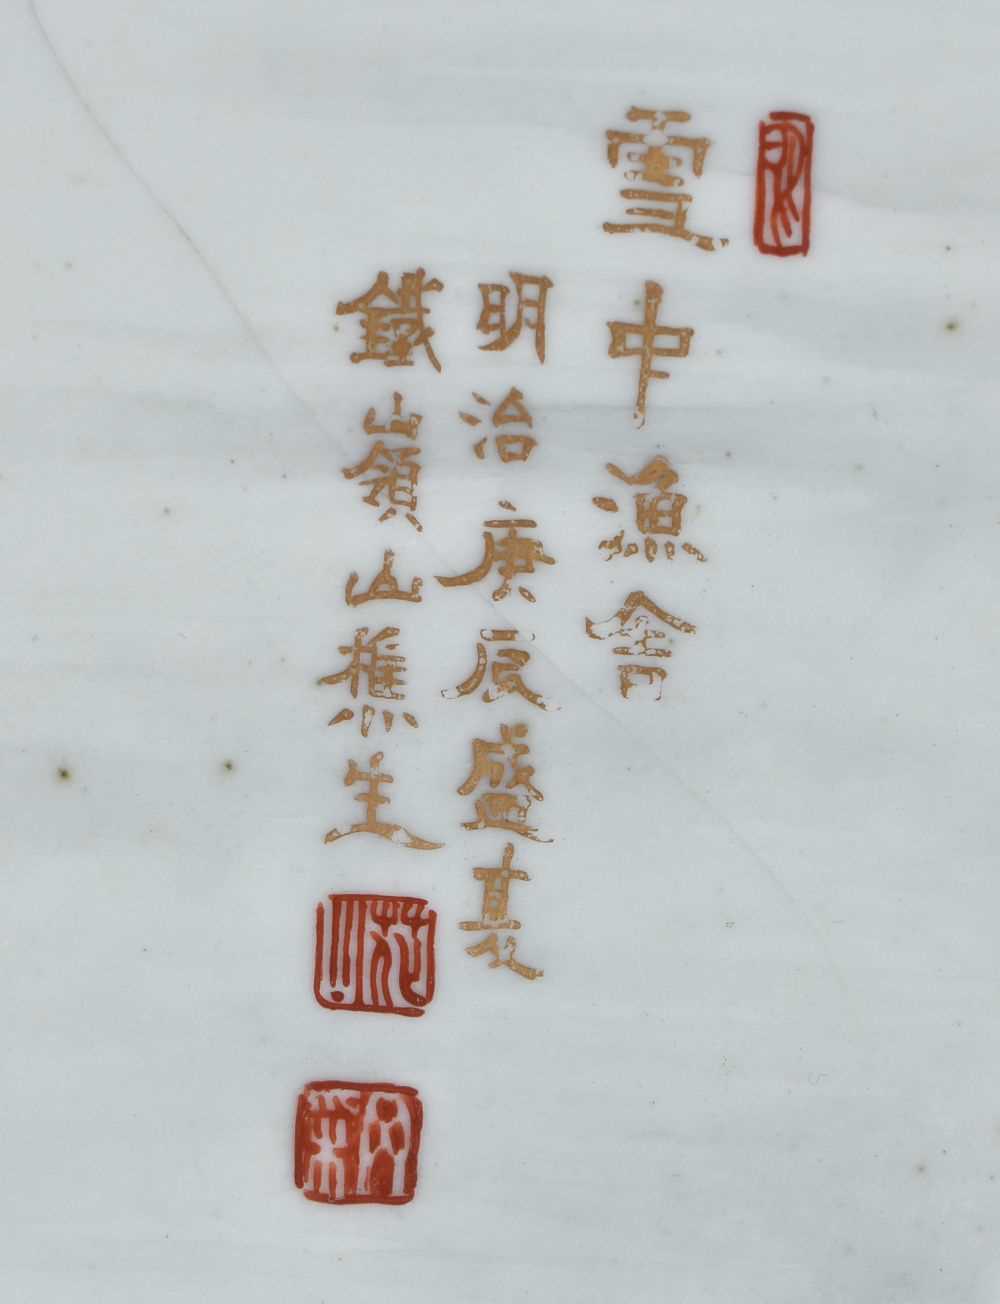 雪中漁舎
明治庚辰盛夏
鐵嶺山樵生